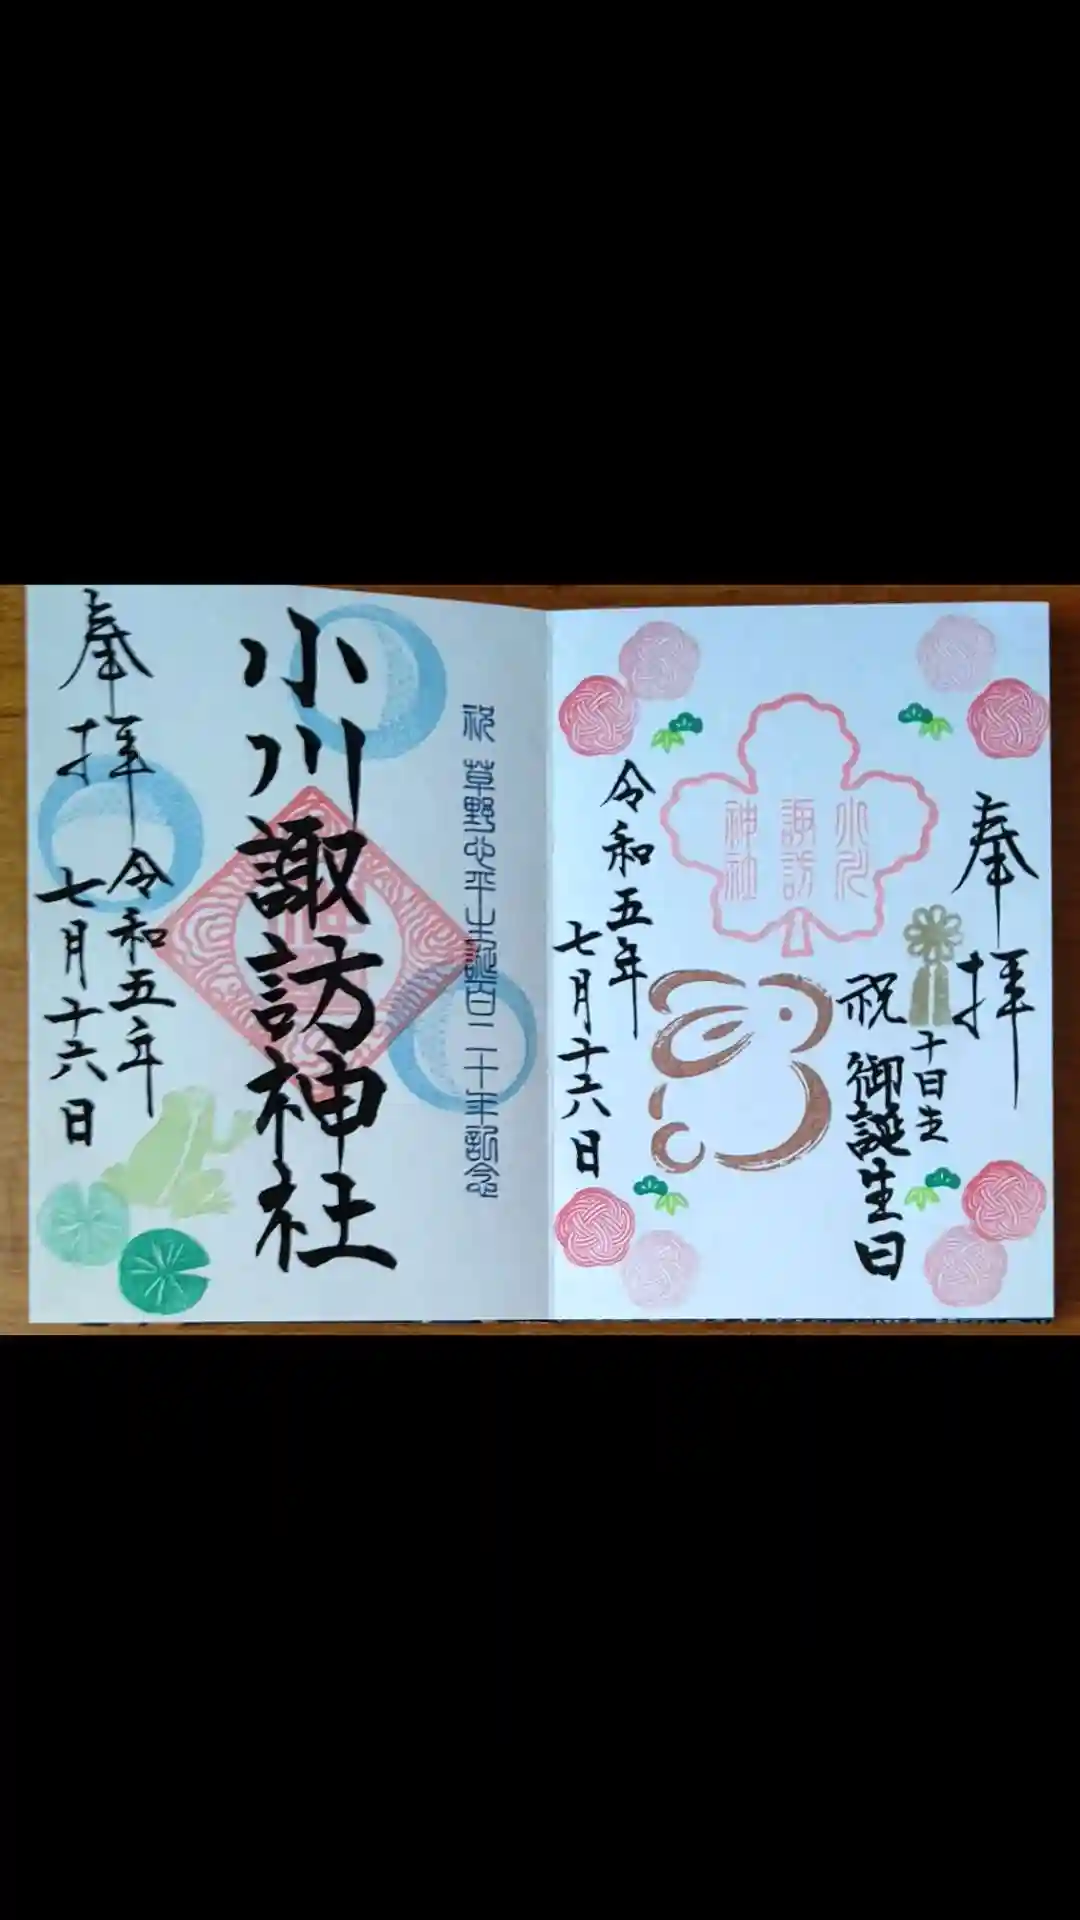 奉拝
祝
十日生
御誕生日
小川
諏訪
神社
令和五年
七月十六日
祝 草野心平生誕百二十年記念
小川諏訪神社
奉拝
令和五年
七月十六日